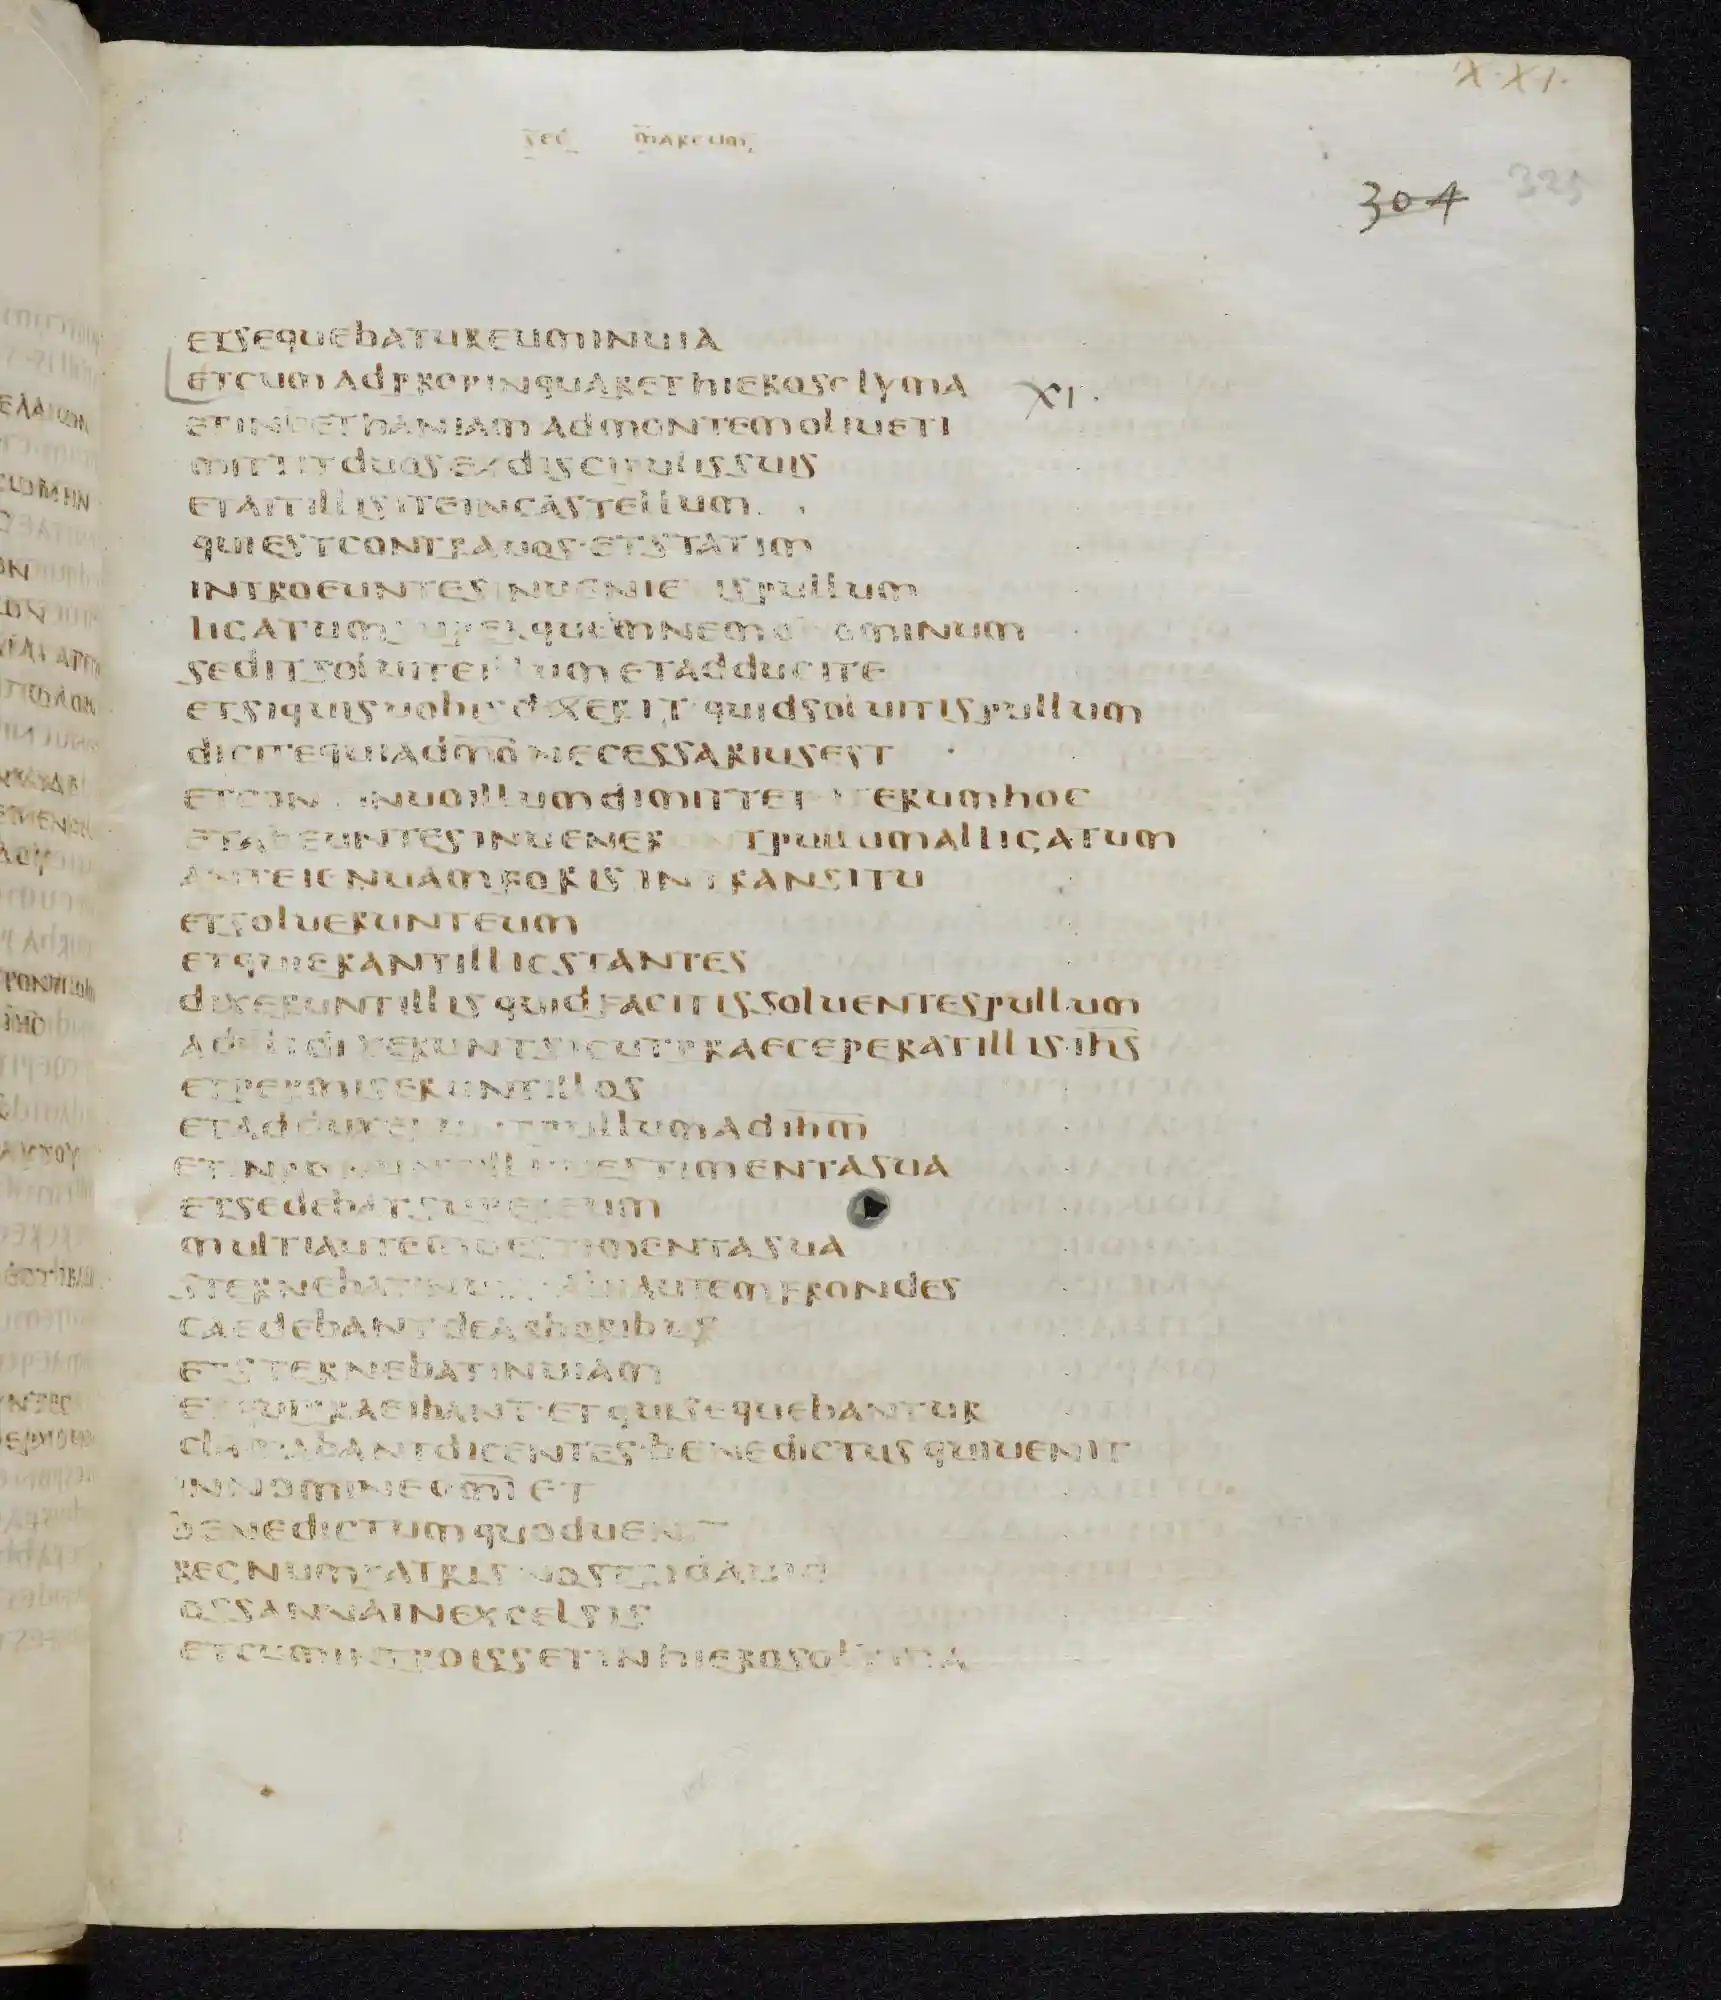 X·XI·
sec marcum
304 325
etsequebatureuminuia
etcumadpropinquarethierosclyma XI·
etinbethaniamadmontemoliueti
mittitduosexdiscipulissuis
etaitillisiteincastellum
quiestcontrauos·etstatim
introeuntesinuenie ispullum
licatumsuperquemnemo ominum
seditsoluiteillumetadducite
etsiquisuobisdixeritquidsoluitispullum
dicitequiadm̅o̅necessariusest
etcon inuoillumdimittet iterumhoc
etabeuntesinueneruntpullumalligatum
anteienuamforisintransitu
etsoluerunteum
etquierantillicstantes
dixeruntillisquidfacitissoluentespullum
adillidixeruntsicutpraeceperatillis·ih̅s̅
etpermiseruntillos
etadduxeruntpullumadih̅m̅
etinposueruntilliuestimentasua
etsedebatsupereum
multiautemuestimentasua
sternebatinuia aliiautemfrondes
caedebantdearboribus
etsternebatinuiam
etquipraeibant·etquisequebantur
clamabantdicentes·benedictusquiuenit
innominedm̅i̅et
benedictumquoduenit
regnumpatrisnostridauid
ossannainexcelsis
etcumintroissetinhierosolyma